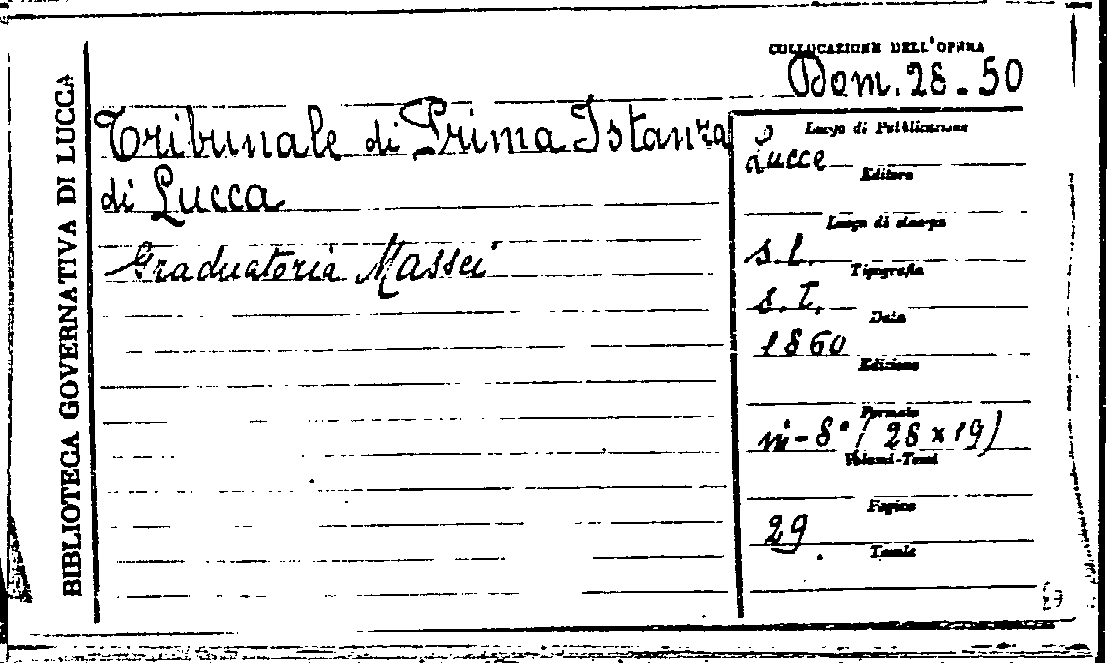 BIBLIOTECA GOVERNATIVA DI LUCCA
Tribunale di Prima Istanza
di Lucca
Graduatoria Massei
COLLOCAZIONE DELL'OPERA
Bom. 28-50
Luogo di Pubblicazione
Lucca
Editore
Luogo di stampa
s.l.
Tipografia
s.t.
Data
1860
Edizione
Formato
in-8° (28x19)
Volumi-Tomi
Pagine
29
Tavole